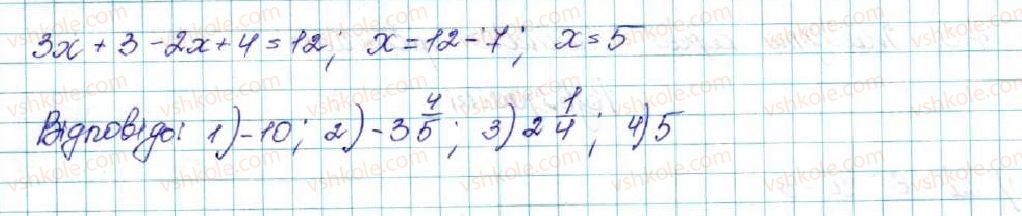 3x + 3 - 2x + 4 = 12; x = 12 - 7; x = 5
Відповідь: 1) -10; 2) -3 4/5; 3) 2 1/4; 4) 5